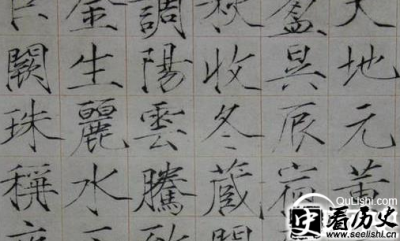 天地元黄
盈昃辰宿
秋收冬藏
調陽雲騰
金生麗水
闕珠稱
QuLiShi.com
史看历史
www.seelishi.com